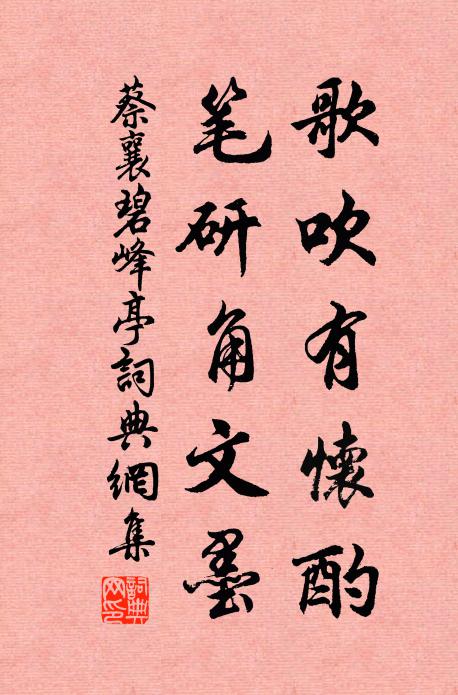 歌吹有懷酌
笔研角文墨
蔡襄碧峰亭詞典網集
詞典网印